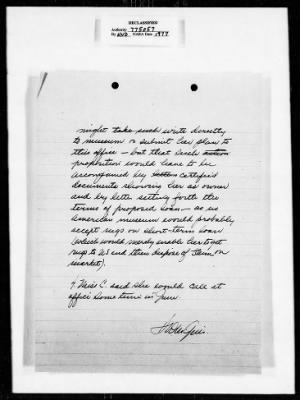 DECLASSIFIED
Authority 775057
By NARA Date 1977
might take such write directly
to museum or submit her plan to
this office – but that such action
proposition would have to be
accompanied by letters certified
documents showing her as owner
and by letter setting forth the
terms of proposed loan – as in
American museum would probably
accept rugs on short-term loan
(which would merely enable her to get
rugs to US and then dispose of them on
market).
9 Miss C. said she would call at
office some time in June